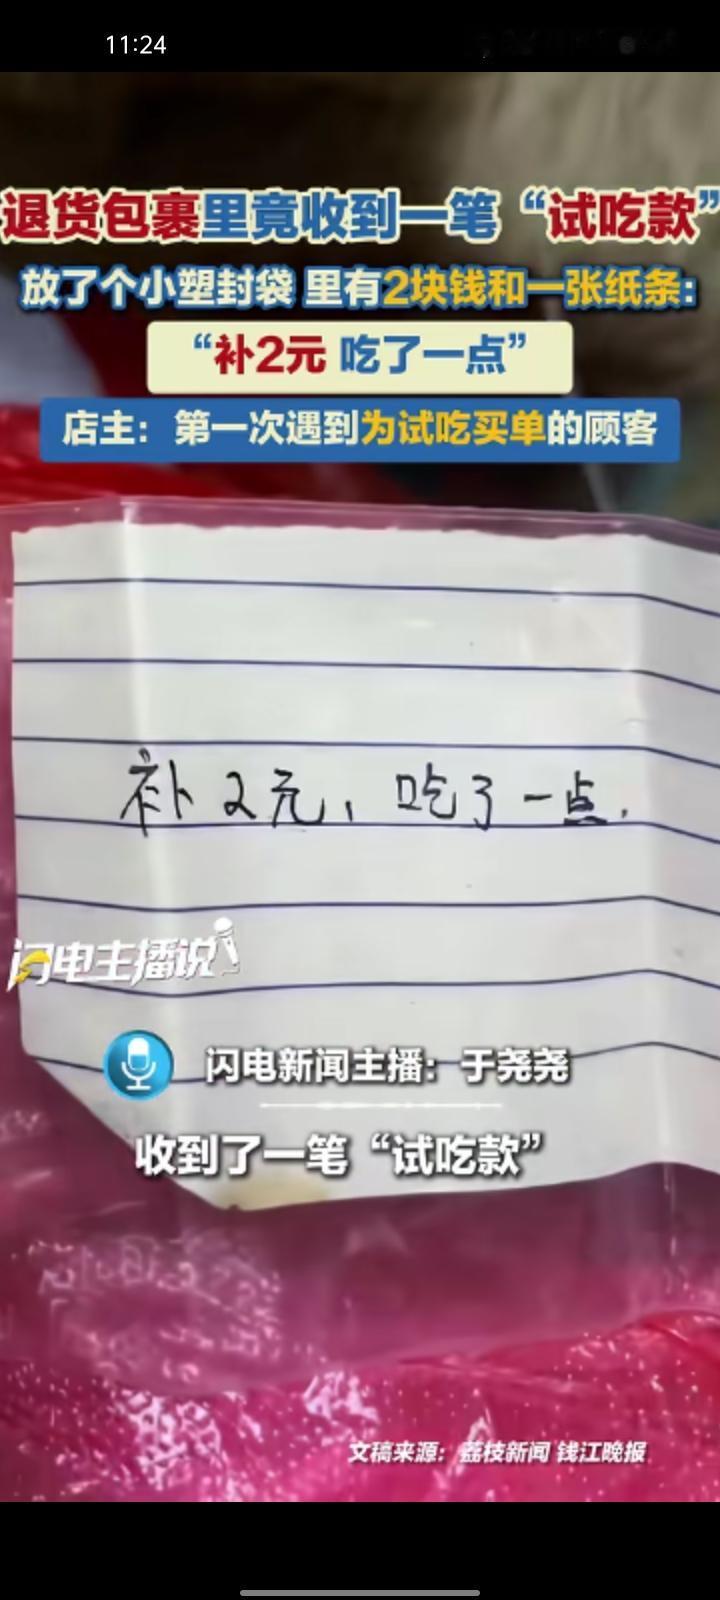 11:24
退货包裹里竟收到一笔“试吃款”
放了个小塑封袋 里有2块钱和一张纸条:
“补2元 吃了一点”
店主：第一次遇到为试吃买单的顾客
补2元，吃了一点.
闪电主播说
闪电新闻主播：于尧尧
收到了一笔“试吃款”
文稿来源：荔枝新闻 钱江晚报